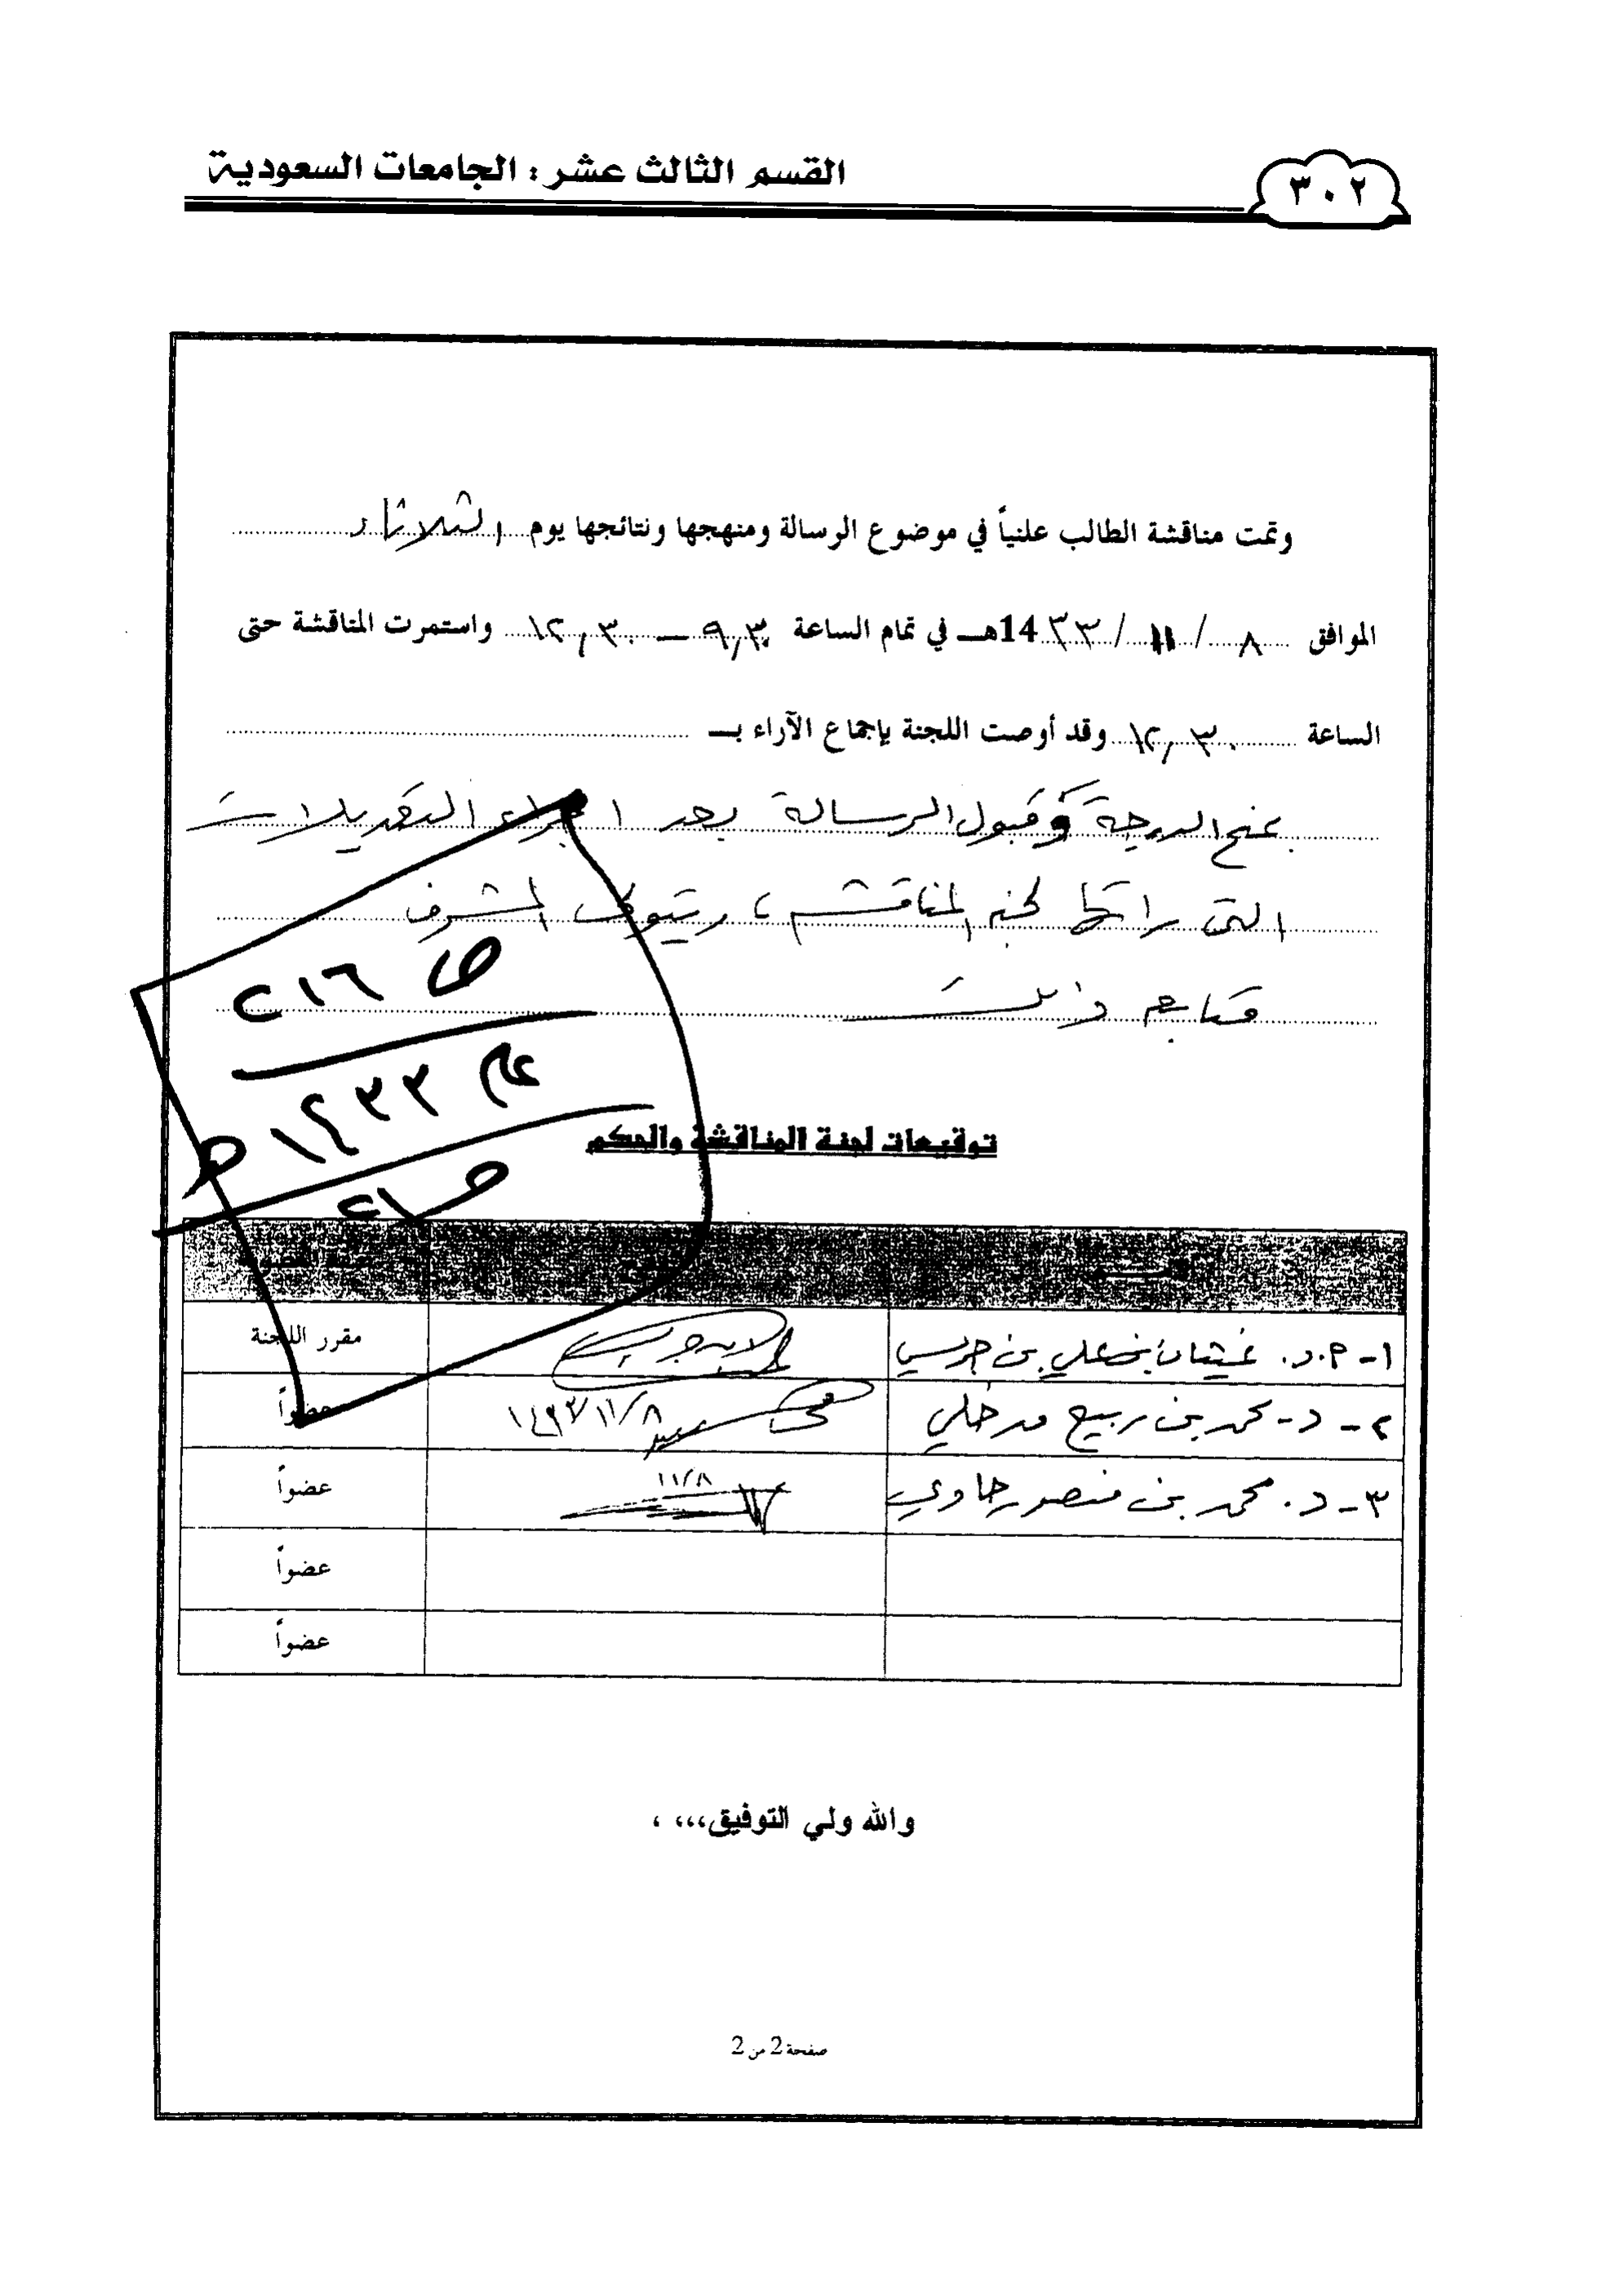 ٣٠٢
القسم الثالث عشر : الجامعات السعودية
وتمت مناقشة الطالب علنياً في موضوع الرسالة ومنهجها ونتائجها يوم الثلاثاء
الموافق ٨ / ١١ / ١٤٣٣هـ في تمام الساعة ٩,٣٠ – ١٢,٣٠ واستمرت المناقشة حتى
الساعة ١٢,٣٠ وقد أوصت اللجنة بإجماع الآراء بـ
بمنح الدرجة وقبول الرسالة بعد اجراء التعديلات
التي رأتها لجنة المناقشة ، ويتولى المشرف
متابعة ذلك
ص ٢١٦
عام ١٤٣٣هـ
توقيعات لجنة المناقشة والحكم
صفة العضوية
١- أ.د. غيثان بن علي بن جريس
مقرر اللجنة
٢- د- محمد بن ربيع مدخلي
٨/١١/١٤٣٣
عضواً
٣- د. محمد بن منصور حاوي
٨/١١
عضواً
عضواً
عضواً
والله ولي التوفيق،،، ،
صفحة 2 من 2